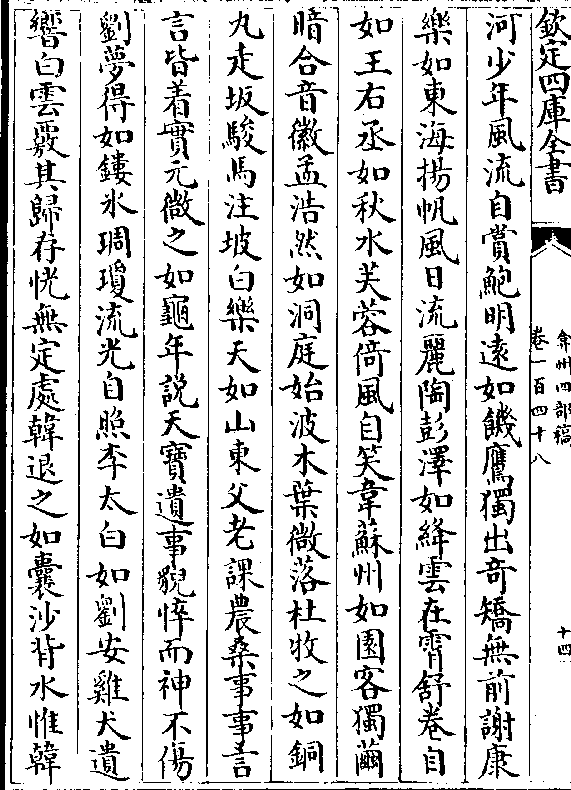 欽定四庫全書
弇州四部稿
卷一百四十八
十四
河少年風流自賞鮑明遠如饑鷹獨出竒矯無前謝康
樂如東海揚帆風日流麗陶彭澤如絳雲在霄舒卷自
如王右丞如秋水芙蓉倚風自笑韋蘇州如園客獨繭
暗合音徽孟浩然如洞庭始波木葉微落杜牧之如銅
丸走坂駿馬注坡白樂天如山東父老課農桑事事言
言皆着實元微之如龜年説天寶遺事貌悴而神不傷
劉夢得如鏤氷琱瓊流光自照李太白如劉安雞犬遺
響白雲覈其歸存恍無定處韓退之如囊沙背水惟韓